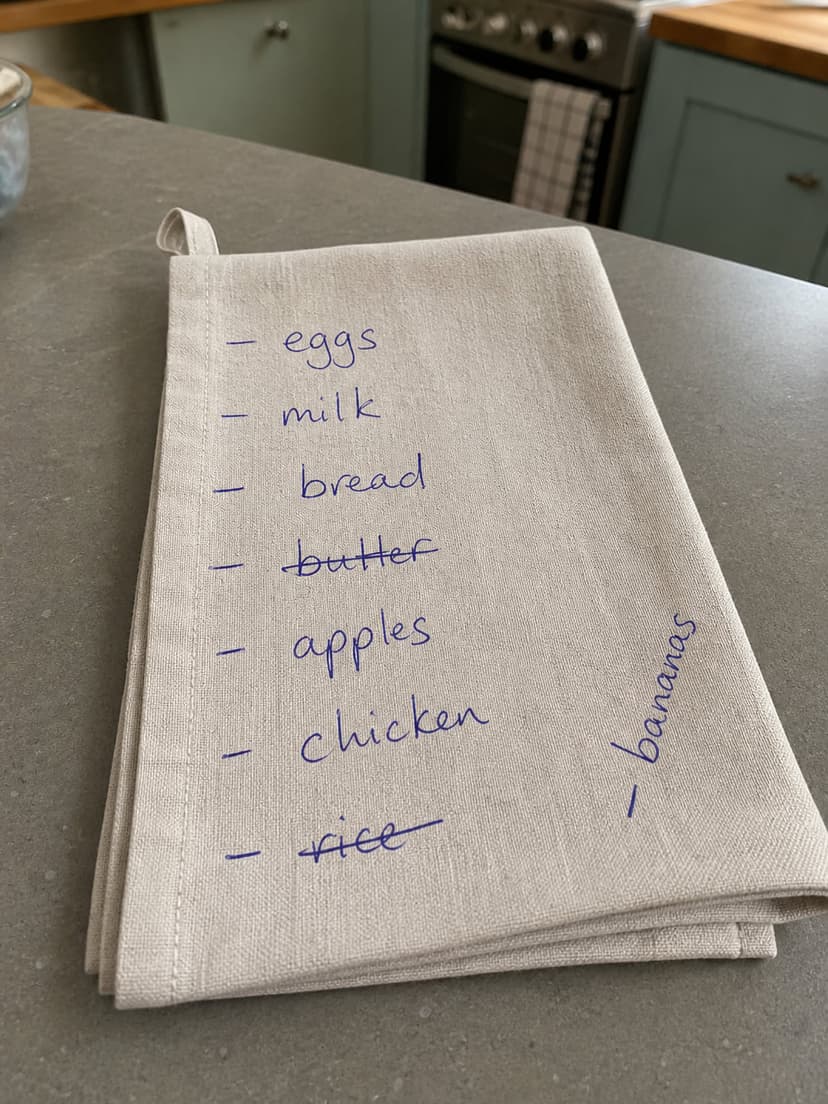 - eggs
- milk
- bread
- ~~butter~~
- apples
- chicken
- ~~rice~~
- bananas